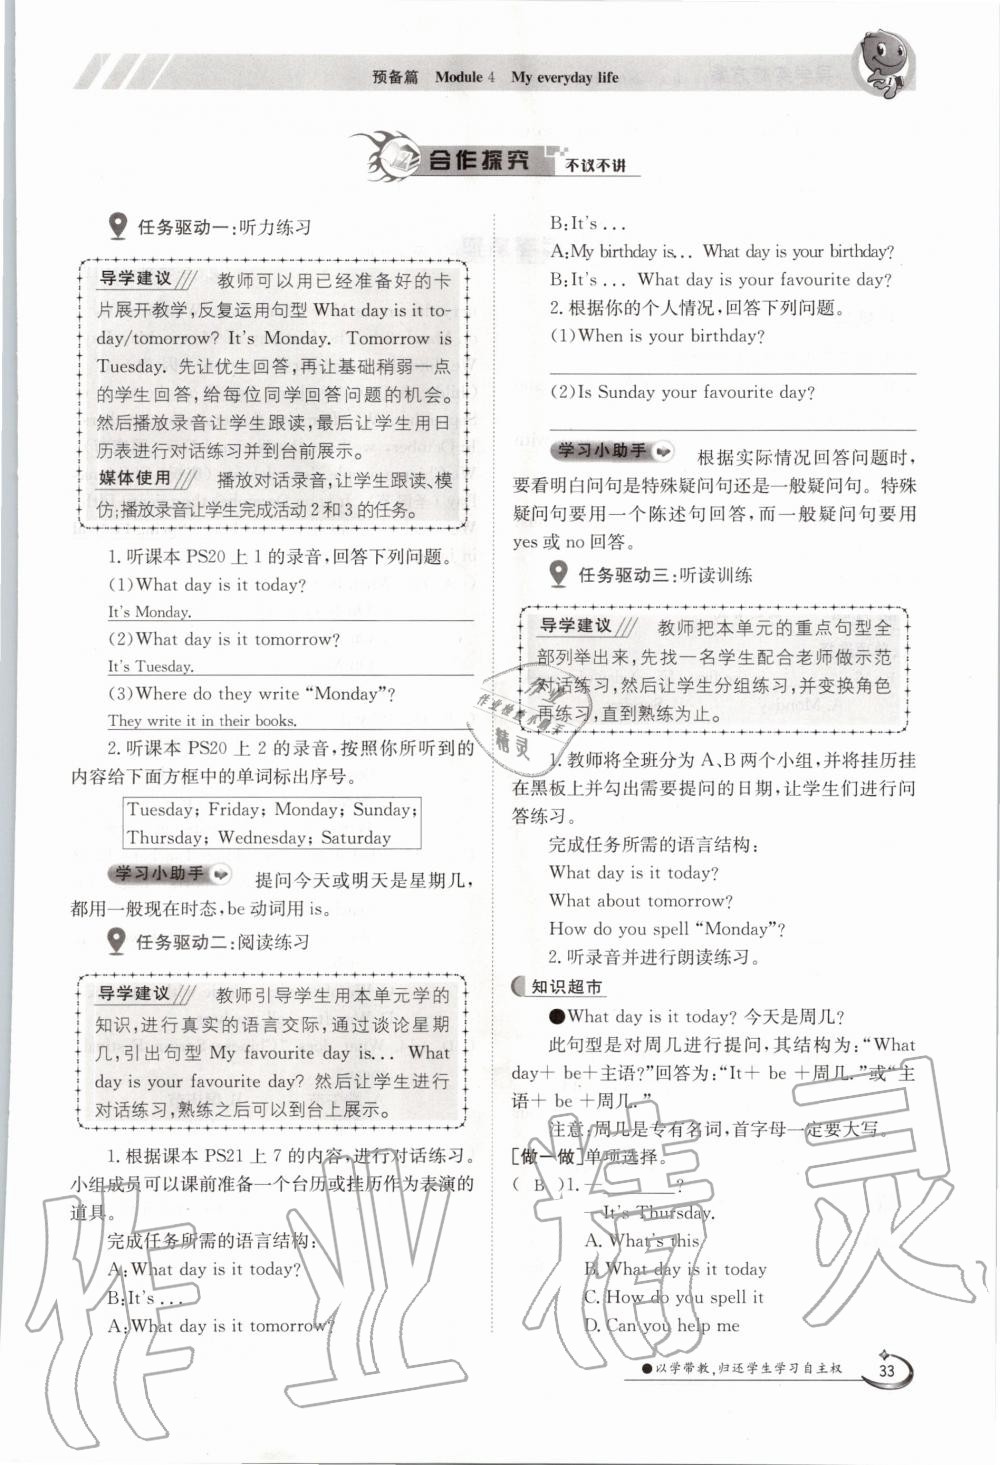 预备篇 Module 4 My everyday life
合作探究 不议不讲
任务驱动一:听力练习
导学建议 教师可以用已经准备好的卡
片展开教学,反复运用句型 What day is it to-
day/tomorrow? It's Monday. Tomorrow is
Tuesday. 先让优生回答,再让基础稍弱一点
的学生回答,给每位同学回答问题的机会。
然后播放录音让学生跟读,最后让学生用日
历表进行对话练习并到台前展示。
媒体使用 播放对话录音,让学生跟读、模
仿;播放录音让学生完成活动 2 和 3 的任务。
1. 听课本 PS20 上 1 的录音,回答下列问题。
(1)What day is it today?
It's Monday.
(2)What day is it tomorrow?
It's Tuesday.
(3)Where do they write “Monday”?
They write it in their books.
2. 听课本 PS20 上 2 的录音,按照你所听到的
内容给下面方框中的单词标出序号。
Tuesday; Friday; Monday; Sunday;
Thursday; Wednesday; Saturday
学习小助手 提问今天或明天是星期几,
都用一般现在时态,be 动词用 is。
任务驱动二:阅读练习
导学建议 教师引导学生用本单元学的
知识,进行真实的语言交际,通过谈论星期
几,引出句型 My favourite day is... What
day is your favourite day? 然后让学生进行
对话练习,熟练之后可以到台上展示。
1. 根据课本 PS21 上 7 的内容,进行对话练习。
小组成员可以课前准备一个台历或挂历作为表演的
道具。
完成任务所需的语言结构:
A:What day is it today?
B:It's ...
A:What day is it tomorrow?
B:It's ...
A:My birthday is... What day is your birthday?
B:It's ... What day is your favourite day?
2. 根据你的个人情况,回答下列问题。
(1)When is your birthday?
(2)Is Sunday your favourite day?
学习小助手 根据实际情况回答问题时,
要看明白问句是特殊疑问句还是一般疑问句。特殊
疑问句要用一个陈述句回答,而一般疑问句要用
yes 或 no 回答。
任务驱动三:听读训练
导学建议 教师把本单元的重点句型全
部列举出来,先找一名学生配合老师做示范
对话练习,然后让学生分组练习,并变换角色
再练习,直到熟练为止。
1. 教师将全班分为 A、B 两个小组,并将挂历挂
在黑板上并勾出需要提问的日期,让学生们进行问
答练习。
完成任务所需的语言结构:
What day is it today?
What about tomorrow?
How do you spell “Monday”?
2. 听录音并进行朗读练习。
知识超市
●What day is it today? 今天是周几?
此句型是对周几进行提问,其结构为:“What
day+ be+主语?”回答为:“It+ be +周几.”或“主
语+ be +周几.”
注意:周几是专有名词,首字母一定要大写。
[做一做]单项选择。
( B )1. —________?
—It's Thursday.
A. What's this
B. What day is it today
C. How do you spell it
D. Can you help me
●以学带教,归还学生学习自主权 33
作业
作业检查小精灵
精灵
作业精灵